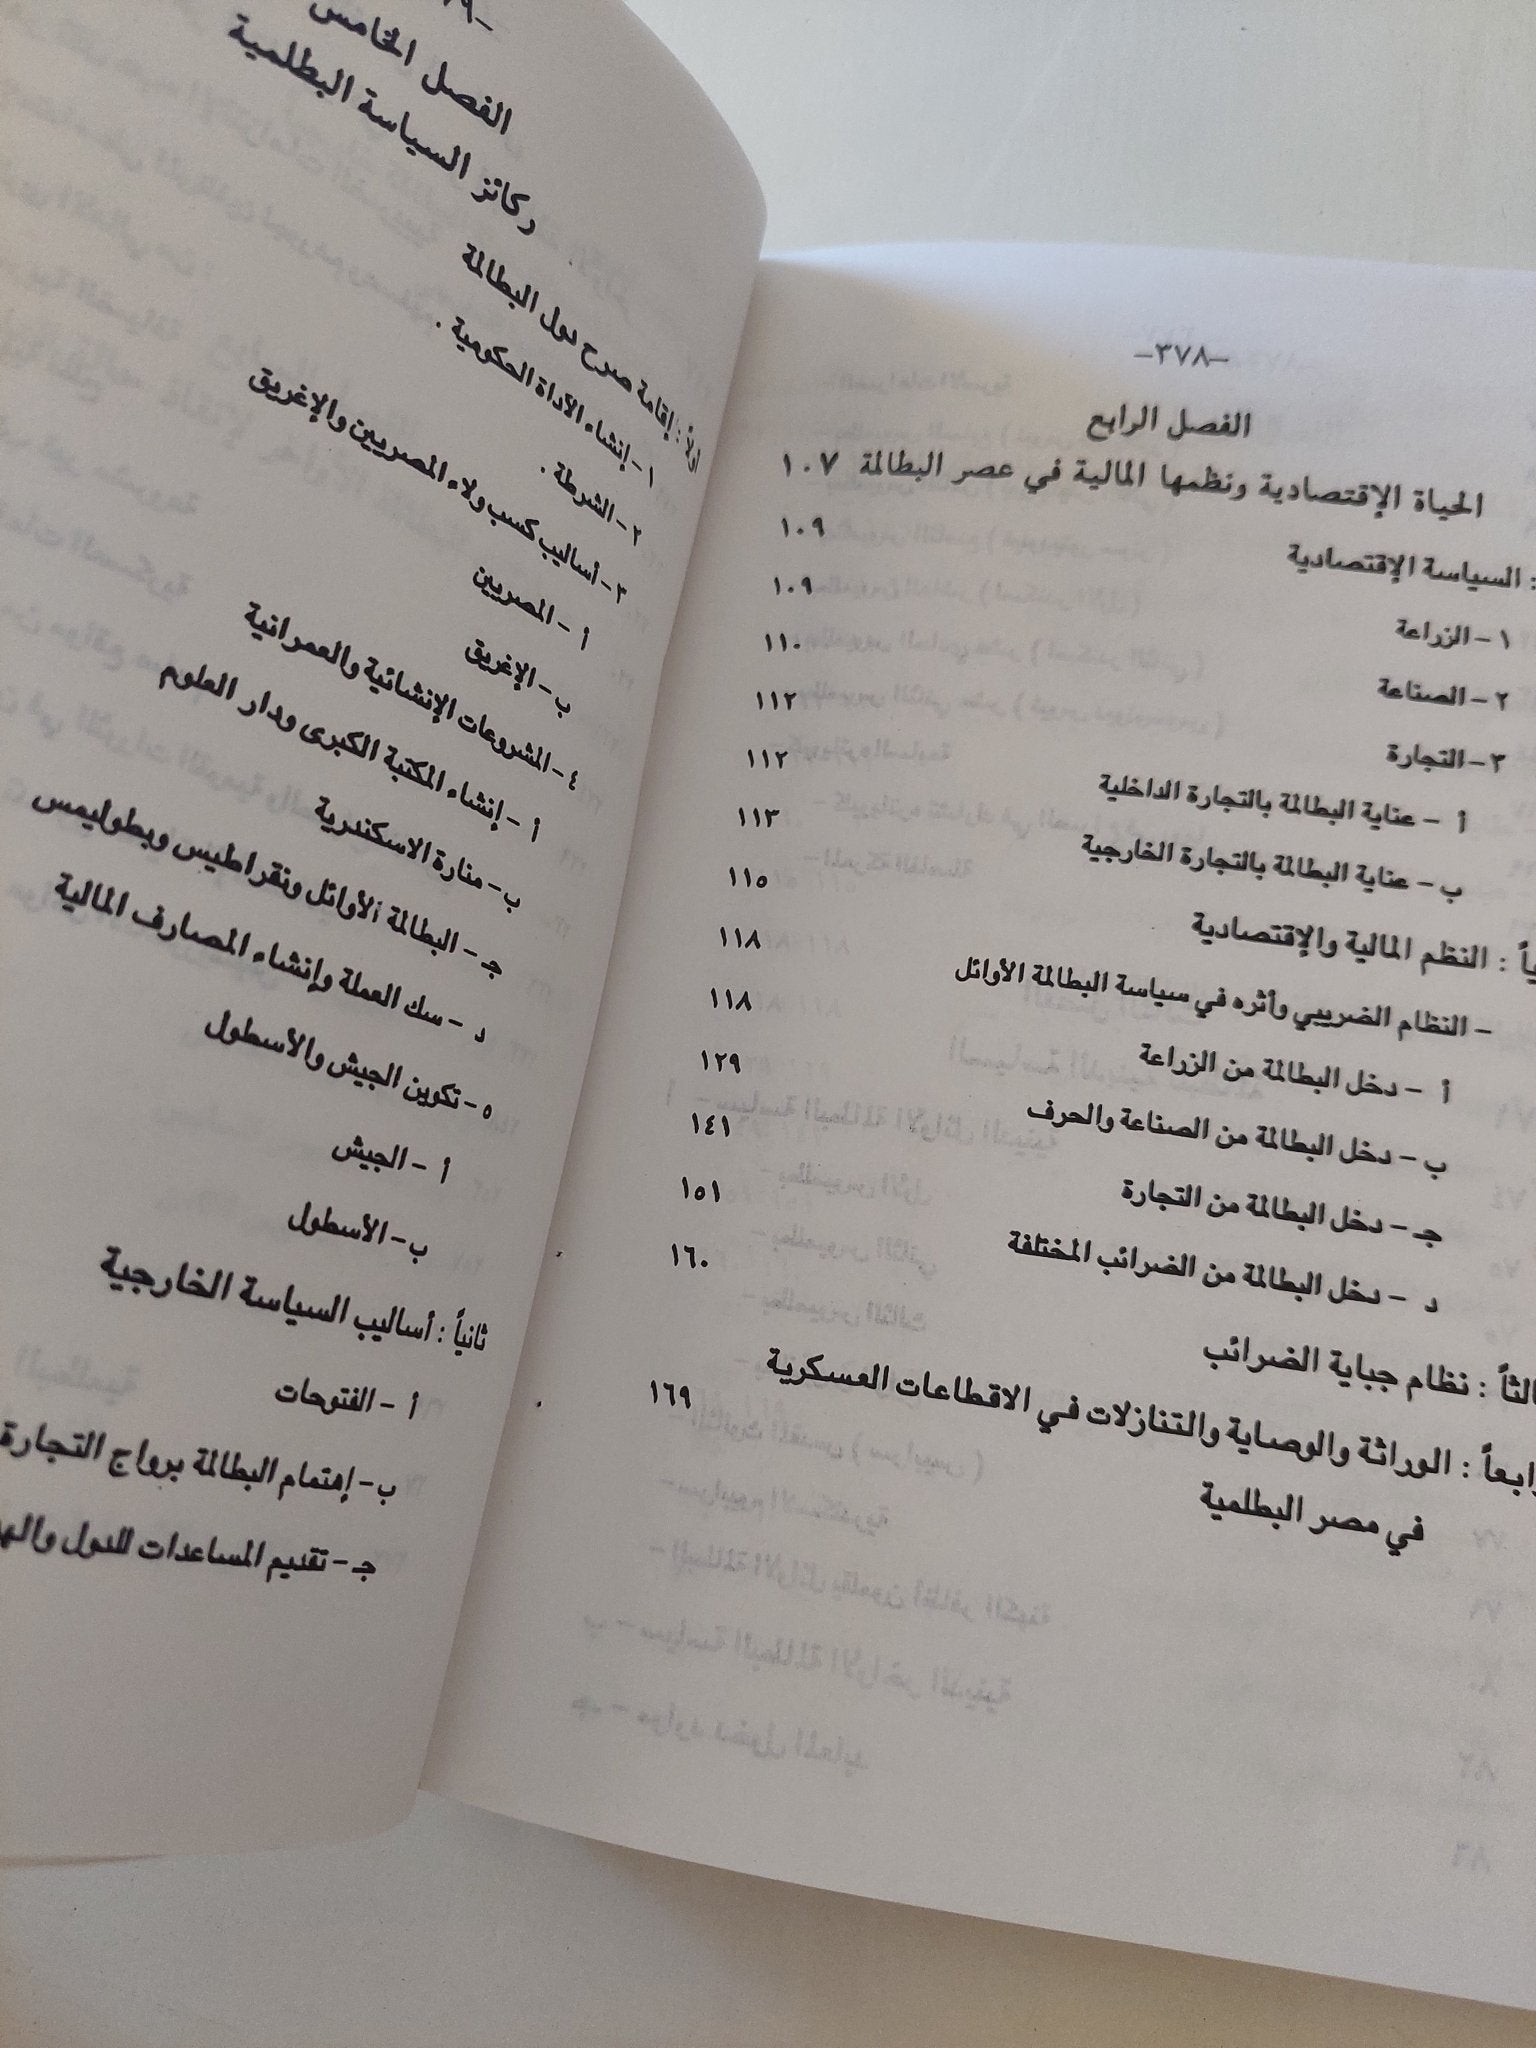 -٣٧٨-
الفصل الرابع
الحياة الإقتصادية ونظمها المالية في عصر البطالمة ١٠٧
: السياسة الإقتصادية ١٠٩
١- الزراعة ١٠٩
٢- الصناعة ١١٠
٣- التجارة ١١٢
أ - عناية البطالمة بالتجارة الداخلية ١١٢
ب - عناية البطالمة بالتجارة الخارجية ١١٣
: النظم المالية والإقتصادية ١١٥
- النظام الضريبي وأثره في سياسة البطالمة الأوائل ١١٨
أ - دخل البطالمة من الزراعة ١١٨
ب - دخل البطالمة من الصناعة والحرف ١٢٩
جـ - دخل البطالمة من التجارة ١٤١
د - دخل البطالمة من الضرائب المختلفة ١٥١
: نظام جباية الضرائب ١٦٠
: الوراثة والوصاية والتنازلات في الاقطاعات العسكرية
في مصر البطلمية ١٦٩
الفصل الخامس
ركائز السياسة البطلمية
اولاً : إقامة صرح دول البطالمة
١- إنشاء الأداة الحكومية .
٢- الشرطة .
٣- أساليب كسب ولاء المصريين والإغريق
أ - المصريين
ب- الإغريق
٤- المشروعات الإنشائية والعمرانية
أ - إنشاء المكتبة الكبرى ودار العلوم
ب- منارة الاسكندرية
جـ- البطالمة الأوائل ونقراطيس وبطوليمس
د - سك العملة وإنشاء المصارف المالية
٥- تكوين الجيش والأسطول
أ - الجيش
ب- الأسطول
ثانياً : أساليب السياسة الخارجية
أ - الفتوحات
ب- إهتمام البطالمة برواج التجارة
جـ- تقديم المساعدات للدول